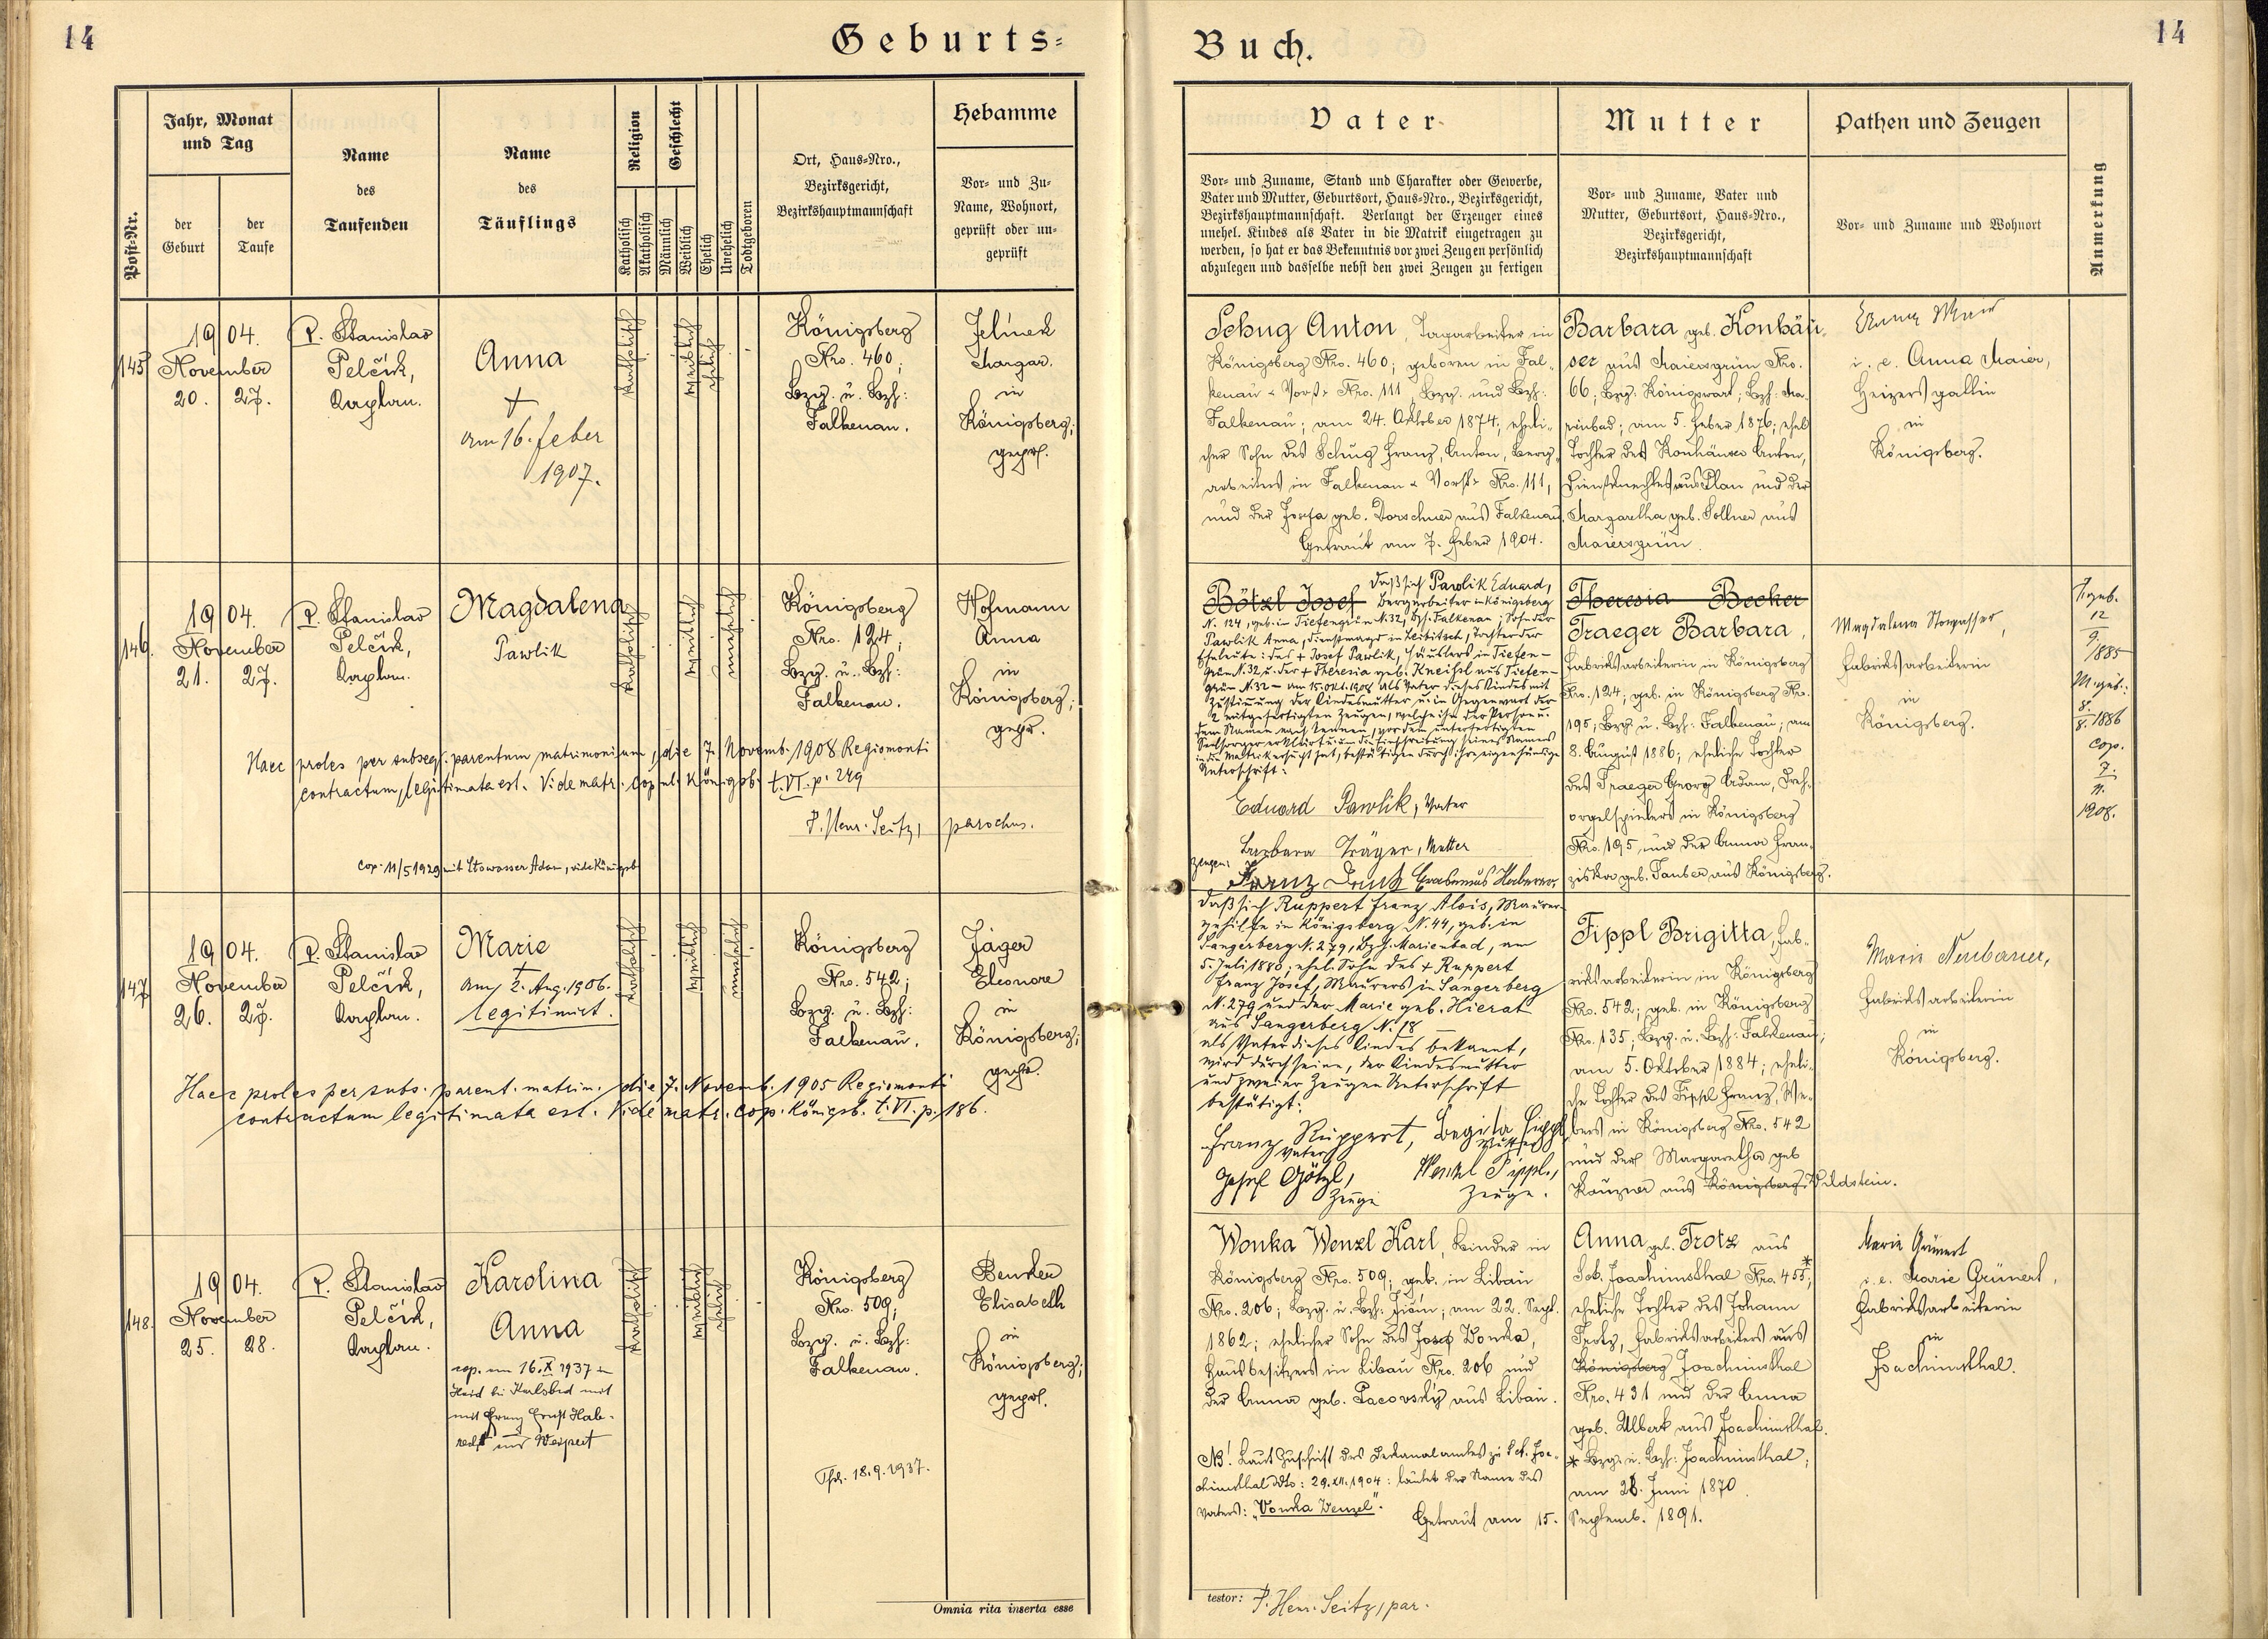 14
Geburts=
Buch.
14
Post=Nr.
Jahr, Monat
und Tag
der
Geburt
der
Taufe
Name
des
Taufenden
Name
des
Täuflings
Religion
Katholisch
Akatholisch
Geschlecht
Männlich
Weiblich
Ehelich
Unehelich
Todtgeboren
Ort, Haus=Nro.,
Bezirksgericht,
Bezirkshauptmannschaft
Hebamme
Vor= und Zu=
Name, Wohnort,
geprüft oder un=
geprüft
Vater
Vor= und Zuname, Stand und Charakter oder Gewerbe,
Vater und Mutter, Geburtsort, Haus=Nro., Bezirksgericht,
Bezirkshauptmannschaft. Verlangt der Erzeuger eines
unehel. Kindes als Vater in die Matrik eingetragen zu
werden, so hat er das Bekenntnis vor zwei Zeugen persönlich
abzulegen und dasselbe nebst den zwei Zeugen zu fertigen
Mutter
Vor= und Zuname, Vater und
Mutter, Geburtsort, Haus=Nro.,
Bezirksgericht,
Bezirkshauptmannschaft
Pathen und Zeugen
Vor= und Zuname und Wohnort
Anmerkung
145
1904.
November
20. 27.
P. Stanislav
Pelčík,
Kaplan.
Anna
†
am 16. feber
1907.
katholisch
weiblich
ehelich
Königsberg
Nro. 460;
Bzg. u. Bzh:
Falkenau.
Jelínek
Margar.
in
Königsberg;
gepr.
Schug Anton, Tagarbeiter in
Königsberg Nro. 460; geboren in Fal-
kenau "Vorst" Nro. 111, Bzg. und Bzh:
Falkenau; am 24. Oktober 1874; eheli-
cher Sohn des Schug Franz, Anton, Berg-
arbeiters in Falkenau "Vorst" Nro. 111,
und der Josefa geb. Dorschner aus Falkenau.
Getraut am 7. Feber 1904.
Barbara geb. Konhäu-
ser aus Maiersgrün Nro.
66; Bzg: Königswart; Bzh: Ma-
rienbad; am 5. Feber 1876; ehel
Tochter des Konhäuser Anton,
Dienstknechtes aus Plan und der
Margaretha geb. Sollner aus
Maiersgrün.
i. e. Anna Maier,
Heizersgattin
in
Königsberg.
146.
1904.
November
21. 27.
P. Stanislav
Pelčík,
Kaplan.
Magdalena
Pawlik
katholisch
weiblich
unehelich
Königsberg
Nro. 124;
Bzg. u. Bzh:
Falkenau.
Hofmann
Anna
in
Königsberg;
gepr.
Haec proles per subseq. parentum matrimonium, die 7. Novemb. 1908 Regiomonti
contractum, legitimata est. Vide matr. copul. Königsb. t. VI. p. 249
P. Henr. Seitz, parochus.
cop. 11/5 1929 mit Stowasser Adam, vide Königsb
Bötzl Josef
Daß sich Pawlik Eduard,
Bergarbeiter in Königsberg
N. 124, geb. in Tiefengrün N. 32, Bzh. Falkenau, Sohn der
Pawlik Anna, Dienstmagd in Leibitsch, Tochter der
Eheleute: des † Josef Pawlik, Häuslers in Tiefen-
grün N. 32 u. der † Theresia geb. Kneißl aus Tiefen-
grün N. 32 – am 15. Okt. 1908 als Vater dieses Kindes mit
Zustimmung der Kindesmutter u. in Gegenwart der
2 mitgefertigten Zeugen, welche ihn der Person u.
dem Namen nach kennen, vor dem unterfertigten
Seelsorger erklärt u. um die Einschreibung seines Namens
in die Matrik ersucht hat, bestätigen durch ihre eigenhändige
Unterschrift:
Eduard Pawlik, Vater
Barbara Träger, Mutter
Zeugen:
Theresia Becker
Traeger Barbara,
Fabriksarbeiterin in Königsberg
Nro. 124; geb. in Königsberg Nro.
195; Bzg. u. Bzh: Falkenau; am
8. August 1886; eheliche Tochter
des Traeger Georg Adam, Dreh-
orgelspielers in Königsberg
Nro. 195 und der Anna Fran-
ziska geb. Tauber aus Königsberg.
Magdalena Stowasser,
Fabriksarbeiterin
in
Königsberg.
V. geb.
12
9. 1885
M. geb.:
8.
8. 1886
cop.
7.
11.
1908.
147
1904.
November
26. 27.
P. Stanislav
Pelčík,
Kaplan.
Marie
†
am 2. Aug. 1906.
legitimirt.
katholisch
weiblich
unehelich
Königsberg
Nro. 542;
Bzg. u. Bzh:
Falkenau.
Jäger
Eleonore
in
Königsberg;
gepr.
Haec proles per subs. parent. matrim. die 7. Novemb. 1905 Regiomonti
contractum legitimata est. Vide matr. cop. Königsb. t. VI. p. 186.
Daß sich Ruppert Franz Alois, Maurer-
gehilfe in Königsberg N. 44, geb. in
Sangerberg N. 279, Bzh. Marienbad, am
5. Juli 1880; ehel. Sohn des † Ruppert
Franz Josef, Maurers in Sangerberg
N. 279 und der Marie geb. Hierat
aus Sangerberg N. 18
als Vater dieses Kindes bekannt,
wird durch seine, der Kindesmutter
und zweier Zeugen Unterschrift
bestätigt:
Franz Ruppert, Brigita Fippl
Vater Mutter
Josef Götzl, Wenzl Fippl,
Zeuge Zeuge.
Fippl Brigitta, Fab-
riksarbeiterin in Königsberg
Nro. 542; geb. in Königsberg
Nro. 135; Bzg. u. Bzh: Falkenau;
am 5. Oktober 1884; eheli-
che Tochter des Fippl Franz, We-
bers in Königsberg Nro. 542
und der Margaretha geb
Kauzner aus Königsberg Wildstein.
Marie Neubauer,
Fabriksarbeiterin
in
Königsberg.
148.
1904.
November
25. 28.
P. Stanislav
Pelčík,
Kaplan.
Karolina
Anna
cop. am 16. X 1937 in
Haid bei Karlsbad mit
mit Franz Ernst Hab-
recht aus Weipert
katholisch
weiblich
ehelich
Königsberg
Nro. 509;
Bzg. u. Bzh:
Falkenau.
Tfsch. 18.9.1937.
Benker
Elisabeth
in
Königsberg;
gepr.
Wonka Wenzl Karl, Binder in
Königsberg Nro. 509; geb. in Libau
Nro. 206; Bzg. u. Bzh: Jičín; am 22. Sept.
1862; ehelicher Sohn des Josef Vonka,
Hausbesitzers in Libau Nro. 206 und
der Anna geb. Pacovský aus Libau.
NB! Laut Zuschrift des Dekanalamtes zu Sct. Joa-
chimsthal ddto: 29. XII. 1904: lautet der Name des
Vaters: "Vonka Wenzel".
Getraut am 15. Septemb. 1891.
Anna geb. Trotz aus
Sct. Joachimsthal Nro. 455*;
eheliche Tochter des Johann
Trotz, Fabriksarbeiters aus
Königsberg Joachimsthal
Nro. 431 und der Anna
geb. Ulbert aus Joachimsthal.
* Bzg. u. Bzh: Joachimsthal;
am 28. Juni 1870.
Marie Grünert
i. e. Marie Grünert,
Fabriksarbeiterin
in
Joachimsthal.
Omnia rita inserta esse
testor: P. Henr. Seitz, par.